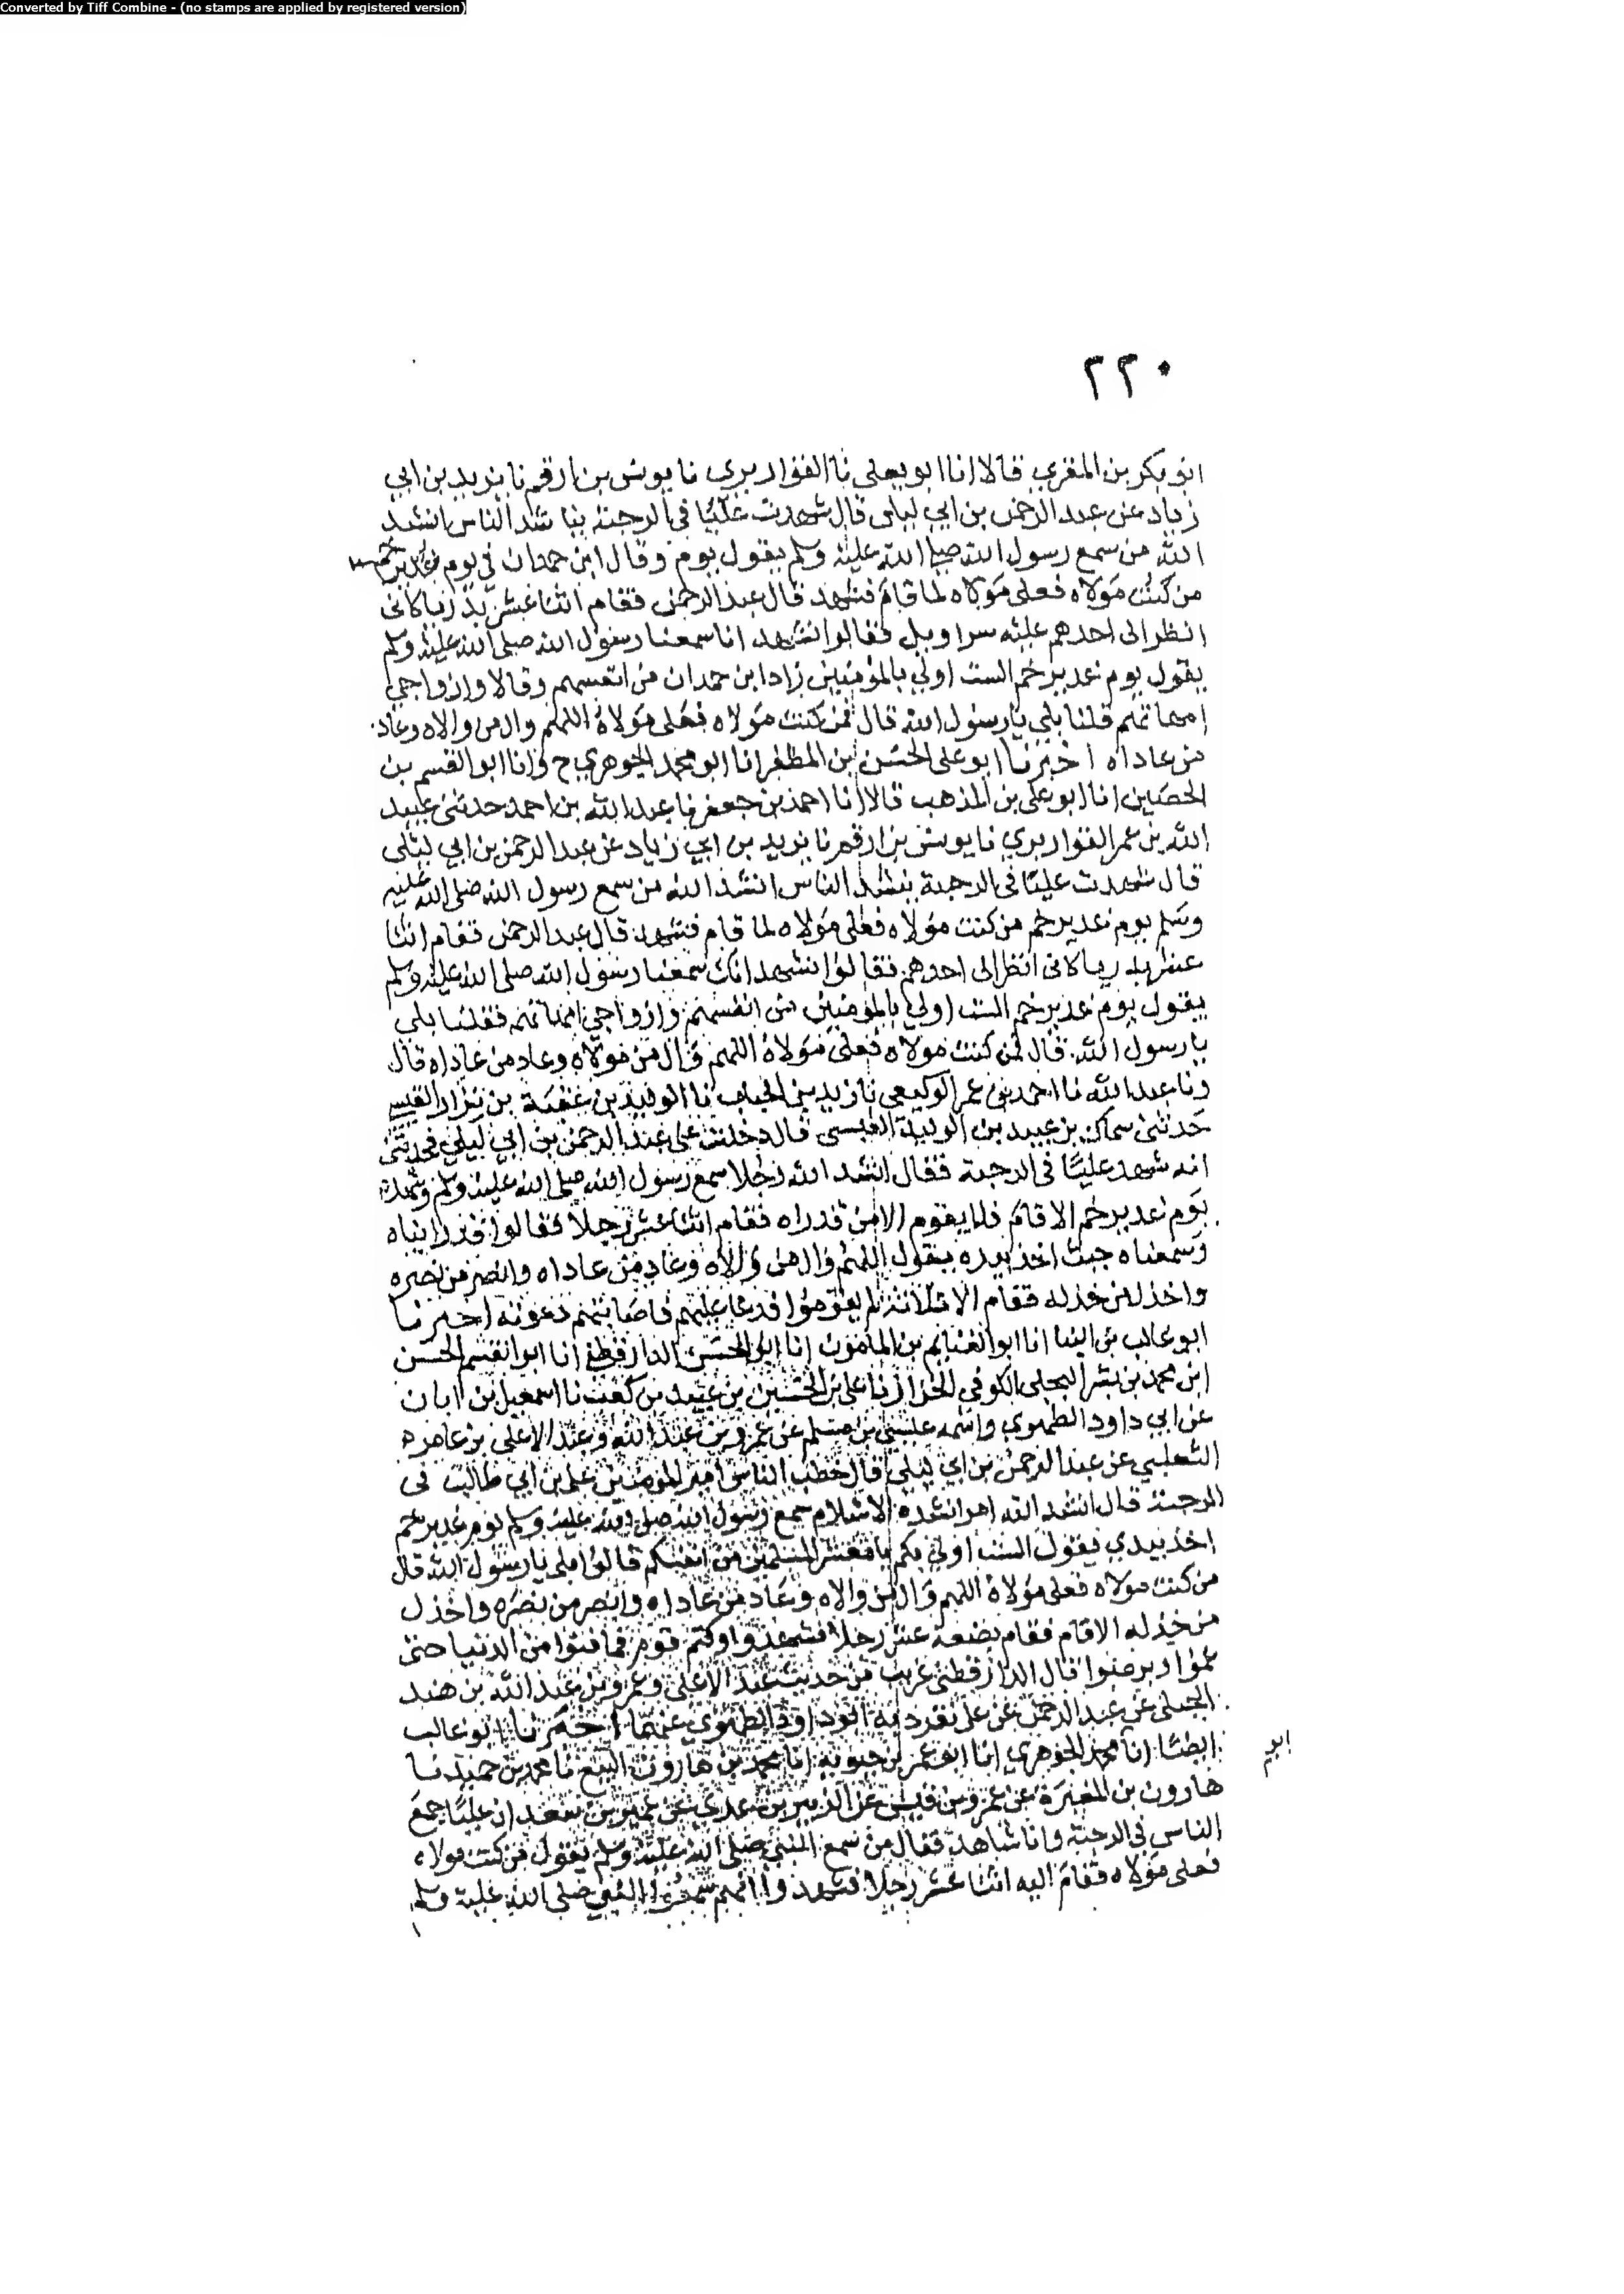 Converted by Tiff Combine - (no stamps are applied by registered version)
٢٢٠
ابو بكر بن المقري قالا انا ابو يعلى نا القواريري نا يونس بن ارقم نا يزيد بن ابي
زياد عن عبد الرحمن بن ابي ليلى قال شهدت عليا في الرحبة يناشد الناس انشد
الله من سمع رسول الله صلى الله عليه وسلم يقول يوم وقال ابن حمدان في يوم غدير خم
من كنت مولاه فعلى مولاه لما قام فشهد قال عبد الرحمن فقام اثنا عشر بدريا كانى
انظر الى احدهم عليه سراويل فقالوا نشهد انا سمعنا رسول الله صلى الله عليه وسلم
يقول يوم غدير خم الست اولى بالمؤمنين زاد ابن حمدان من انفسهم وقالا وازواجي
امهاتهم قلنا بلى يا رسول الله قال فمن كنت مولاه فعلى مولاه اللهم وال من والاه وعاد
من عاداه اخبرنا ابو على الحسن بن المظفر انا ابو محمد الجوهري ح وانا ابو القسم بن
الحصين انا ابو على بن المذهب قالا انا احمد بن جعفر نا عبد الله بن احمد حدثنى عبيد
الله بن عمر القواريري نا يونس بن ارقم نا يزيد بن ابي زياد عن عبد الرحمن بن ابي ليلى
قال شهدت عليا في الرحبة ينشد الناس انشد الله من سمع رسول الله صلى الله عليه
وسلم يوم غدير خم من كنت مولاه فعلى مولاه لما قام فشهد قال عبد الرحمن فقام اثنا
عشر بدريا كانى انظر الى احدهم فقالوا نشهد انا سمعنا رسول الله صلى الله عليه وسلم
يقول يوم غدير خم الست اولى بالمؤمنين من انفسهم وازواجي امهاتهم فقلنا بلى
يا رسول الله قال فمن كنت مولاه فعلى مولاه اللهم وال من مولاه وعاد من عاداه قال
ونا عبد الله نا احمد بن عمر الوكيعي نا زيد بن الحباب نا الوليد بن عقبة بن نزار القيسي
حدثنى سماك بن عبيد بن الوليد القيسي قال دخلت على عبد الرحمن بن ابي ليلى فحدثنى
انه شهد عليا في الرحبة فقال انشد الله رجلا سمع رسول الله صلى الله عليه وسلم وشهده
يوم غدير خم الا قام فلا يقوم الا من قد راه فقام اثنا عشر رجلا فقالوا قد رايناه
وسمعناه حيث اخذ بيده يقول اللهم وال من والاه وعاد من عاداه وانصر من نصره
واخذل من خذله فقام الا ثلاثة لم يقوموا فدعا عليهم فاصابتهم دعوته اخبرنا
ابو غالب بن البنا انا ابو الغنايم بن المامون انا ابو الحسن الدارقطني انا ابو القسم الحسن
ابن محمد بن بشر البجلى الكوفي الخزاز نا على بن الحسين بن عبيد بن كعب نا اسمعيل بن ابان
عن ابي داود الطهوي واسمه عيسى بن مسلم عن عمرو بن عبد الله وعبد الاعلى بن عامر
الثعلبي عن عبد الرحمن بن ابي ليلى قال خطب الناس امير المؤمنين على بن ابي طالب في
الرحبة قال انشد الله امرا نشدة الاسلام سمع رسول الله صلى الله عليه وسلم يوم غدير خم
اخذ بيدي يقول الست اولى بكم يا معشر المسلمين من انفسكم قالوا بلى يا رسول الله قال
من كنت مولاه فعلى مولاه اللهم وال من والاه وعاد من عاداه وانصر من نصره واخذل
من خذله الا قام فقام بضعة عشر رجلا فشهدوا وكتم قوم فما فنوا من الدنيا حتى
عموا وبرصوا قال الدارقطنى غريب من حديث عبد الاعلى وعمرو بن عبد الله بن هند
الجملى عن عبد الرحمن عن على تفرد به ابو داود الطهوي عنهما اخبرنا ابو غالب
ايضا انا محمد الجوهري انا ابو عمر بن حيويه انا محمد بن هارون البيع نا محمد بن حميد نا
هارون بن المغيرة عن عمرو بن قيس عن الزبير بن عدي عن عمير بن سعد ان عليا جمع
الناس في الرحبة وانا شاهد فقال من سمع النبى صلى الله عليه وسلم يقول من كنت مولاه
فعلى مولاه فقام اليه اثنا عشر رجلا فشهدوا انهم سمعوا النبي صلى الله عليه وسلم